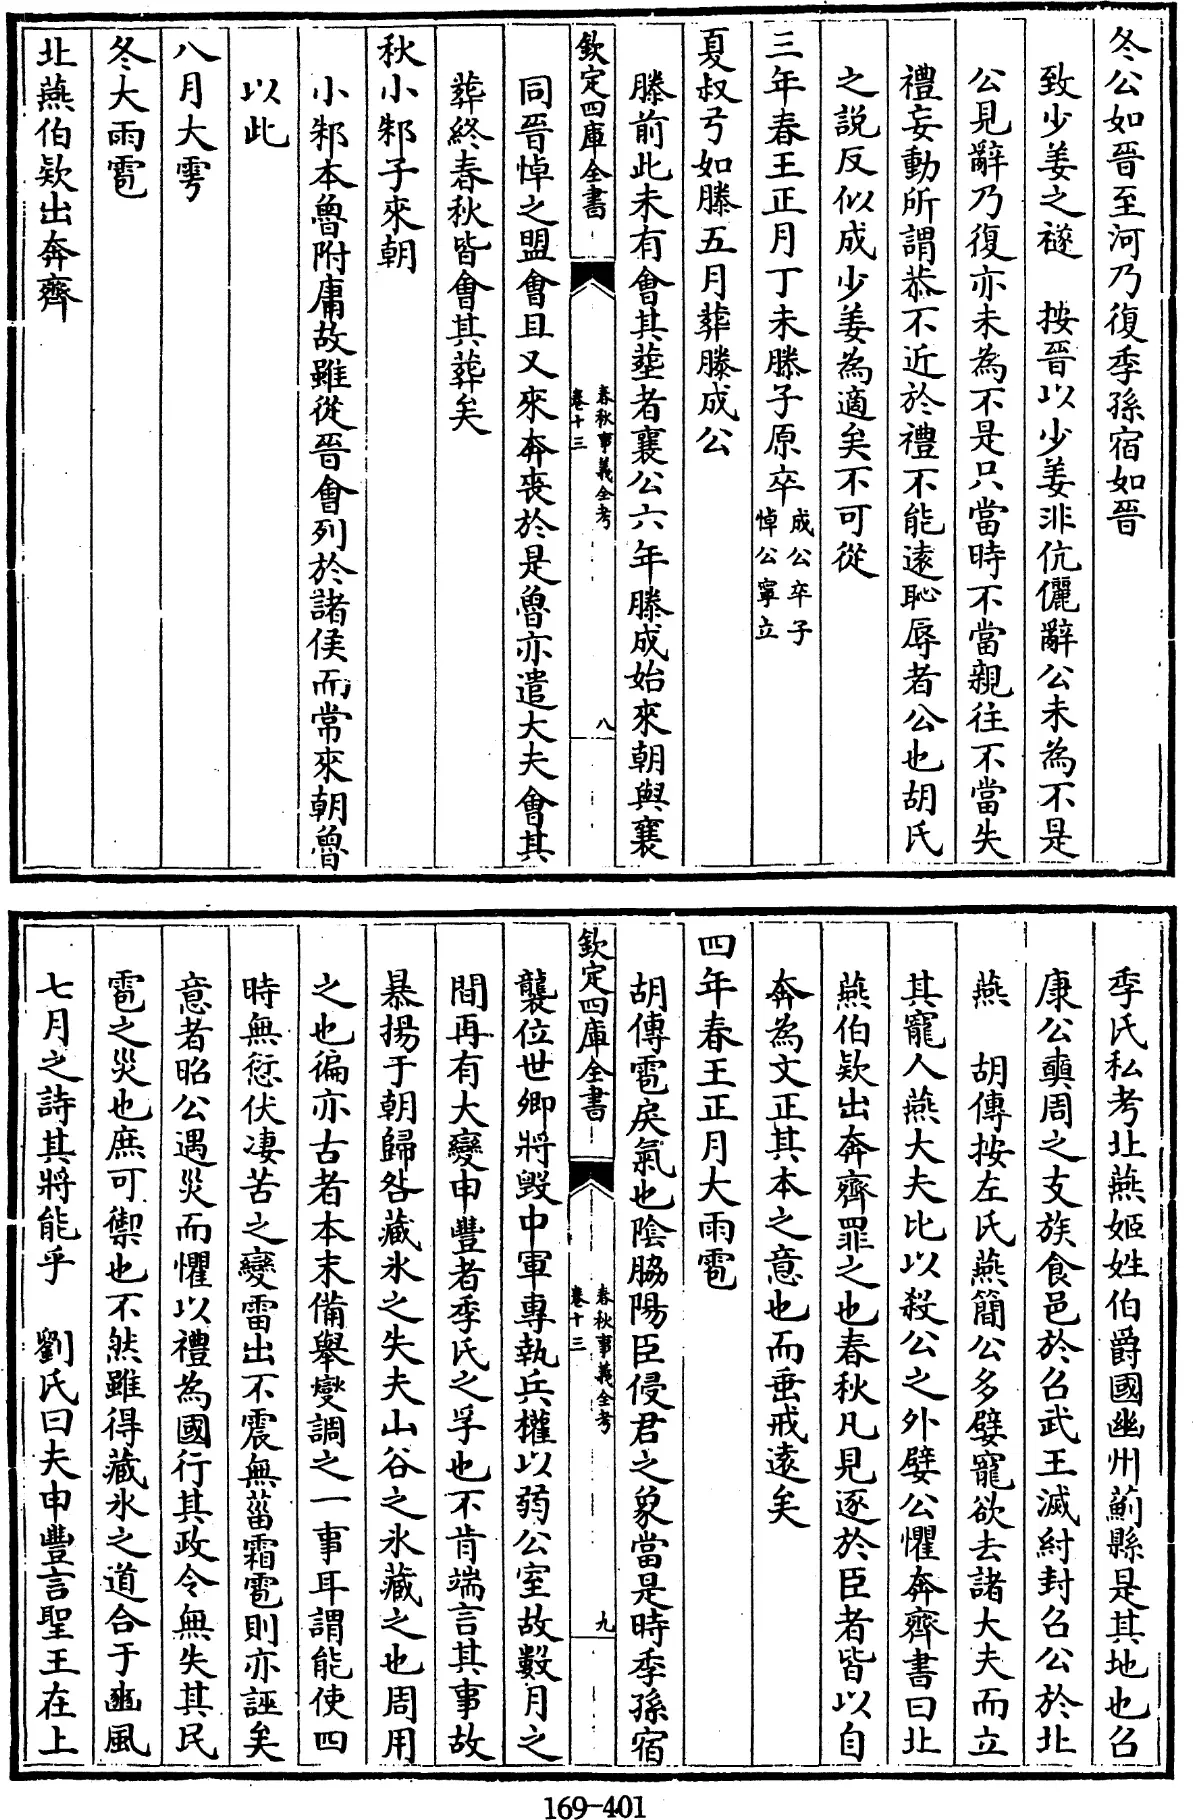 冬公如晉至河乃復季孫宿如晉
致少姜之襚　按晉以少姜非伉儷辭公未為不是
公見辭乃復亦未為不是只當時不當親往不當失
禮妄動所謂恭不近於禮不能遠恥辱者公也胡氏
之說反似成少姜為適矣不可從
三年春王正月丁未滕子原卒成公卒子悼公寧立
夏叔弓如滕五月葬滕成公
滕前此未有會其塟者襄公六年滕成始來朝與襄
欽定四庫全書
春秋事義全考
卷十三
八
同晉悼之盟會且又來奔喪於是魯亦遣大夫會其
葬終春秋皆會其葬矣
秋小邾子來朝
小邾本魯附庸故雖從晉會列於諸侯而常來朝魯
以此
八月大雩
冬大雨雹
北燕伯欵出奔齊
季氏私考北燕姬姓伯爵國幽州薊縣是其地也召
康公奭周之支族食邑於召武王滅紂封召公於北
燕　胡傳按左氏燕簡公多嬖寵欲去諸大夫而立
其寵人燕大夫比以殺公之外嬖公懼奔齊書曰北
燕伯欵出奔齊罪之也春秋凡見逐於臣者皆以自
奔為文正其本之意也而垂戒遠矣
四年春王正月大雨雹
胡傳雹戾氣也陰脇陽臣侵君之象當是時季孫宿
欽定四庫全書
春秋事義全考
卷十三
九
襲位世卿將毀中軍專執兵權以弱公室故數月之
間再有大變申豐者季氏之孚也不肯端言其事故
暴揚于朝歸咎藏氷之失夫山谷之氷藏之也周用
之也徧亦古者本末備舉燮調之一事耳謂能使四
時無愆伏凄苦之變雷出不震無菑霜雹則亦誣矣
意者昭公遇災而懼以禮為國行其政令無失其民
雹之災也庶可禦也不然雖得藏氷之道合于豳風
七月之詩其將能乎　劉氏曰夫申豐言聖王在上
169-401